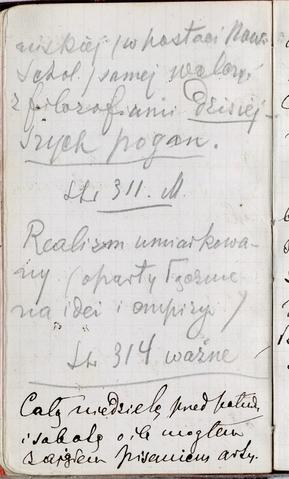 niskiej (w postaci Now.
Schol.) samej walczyć
z filozofiami dzisiej
szych pogan.
str 311. M.
Realizm umiarkowa-
ny (oparty łącznie
na idei i empiryi)
str 314 ważne
Całą niedzielę przed połud.
i sobotę o ile mogłem
zająłem pisaniem arty.